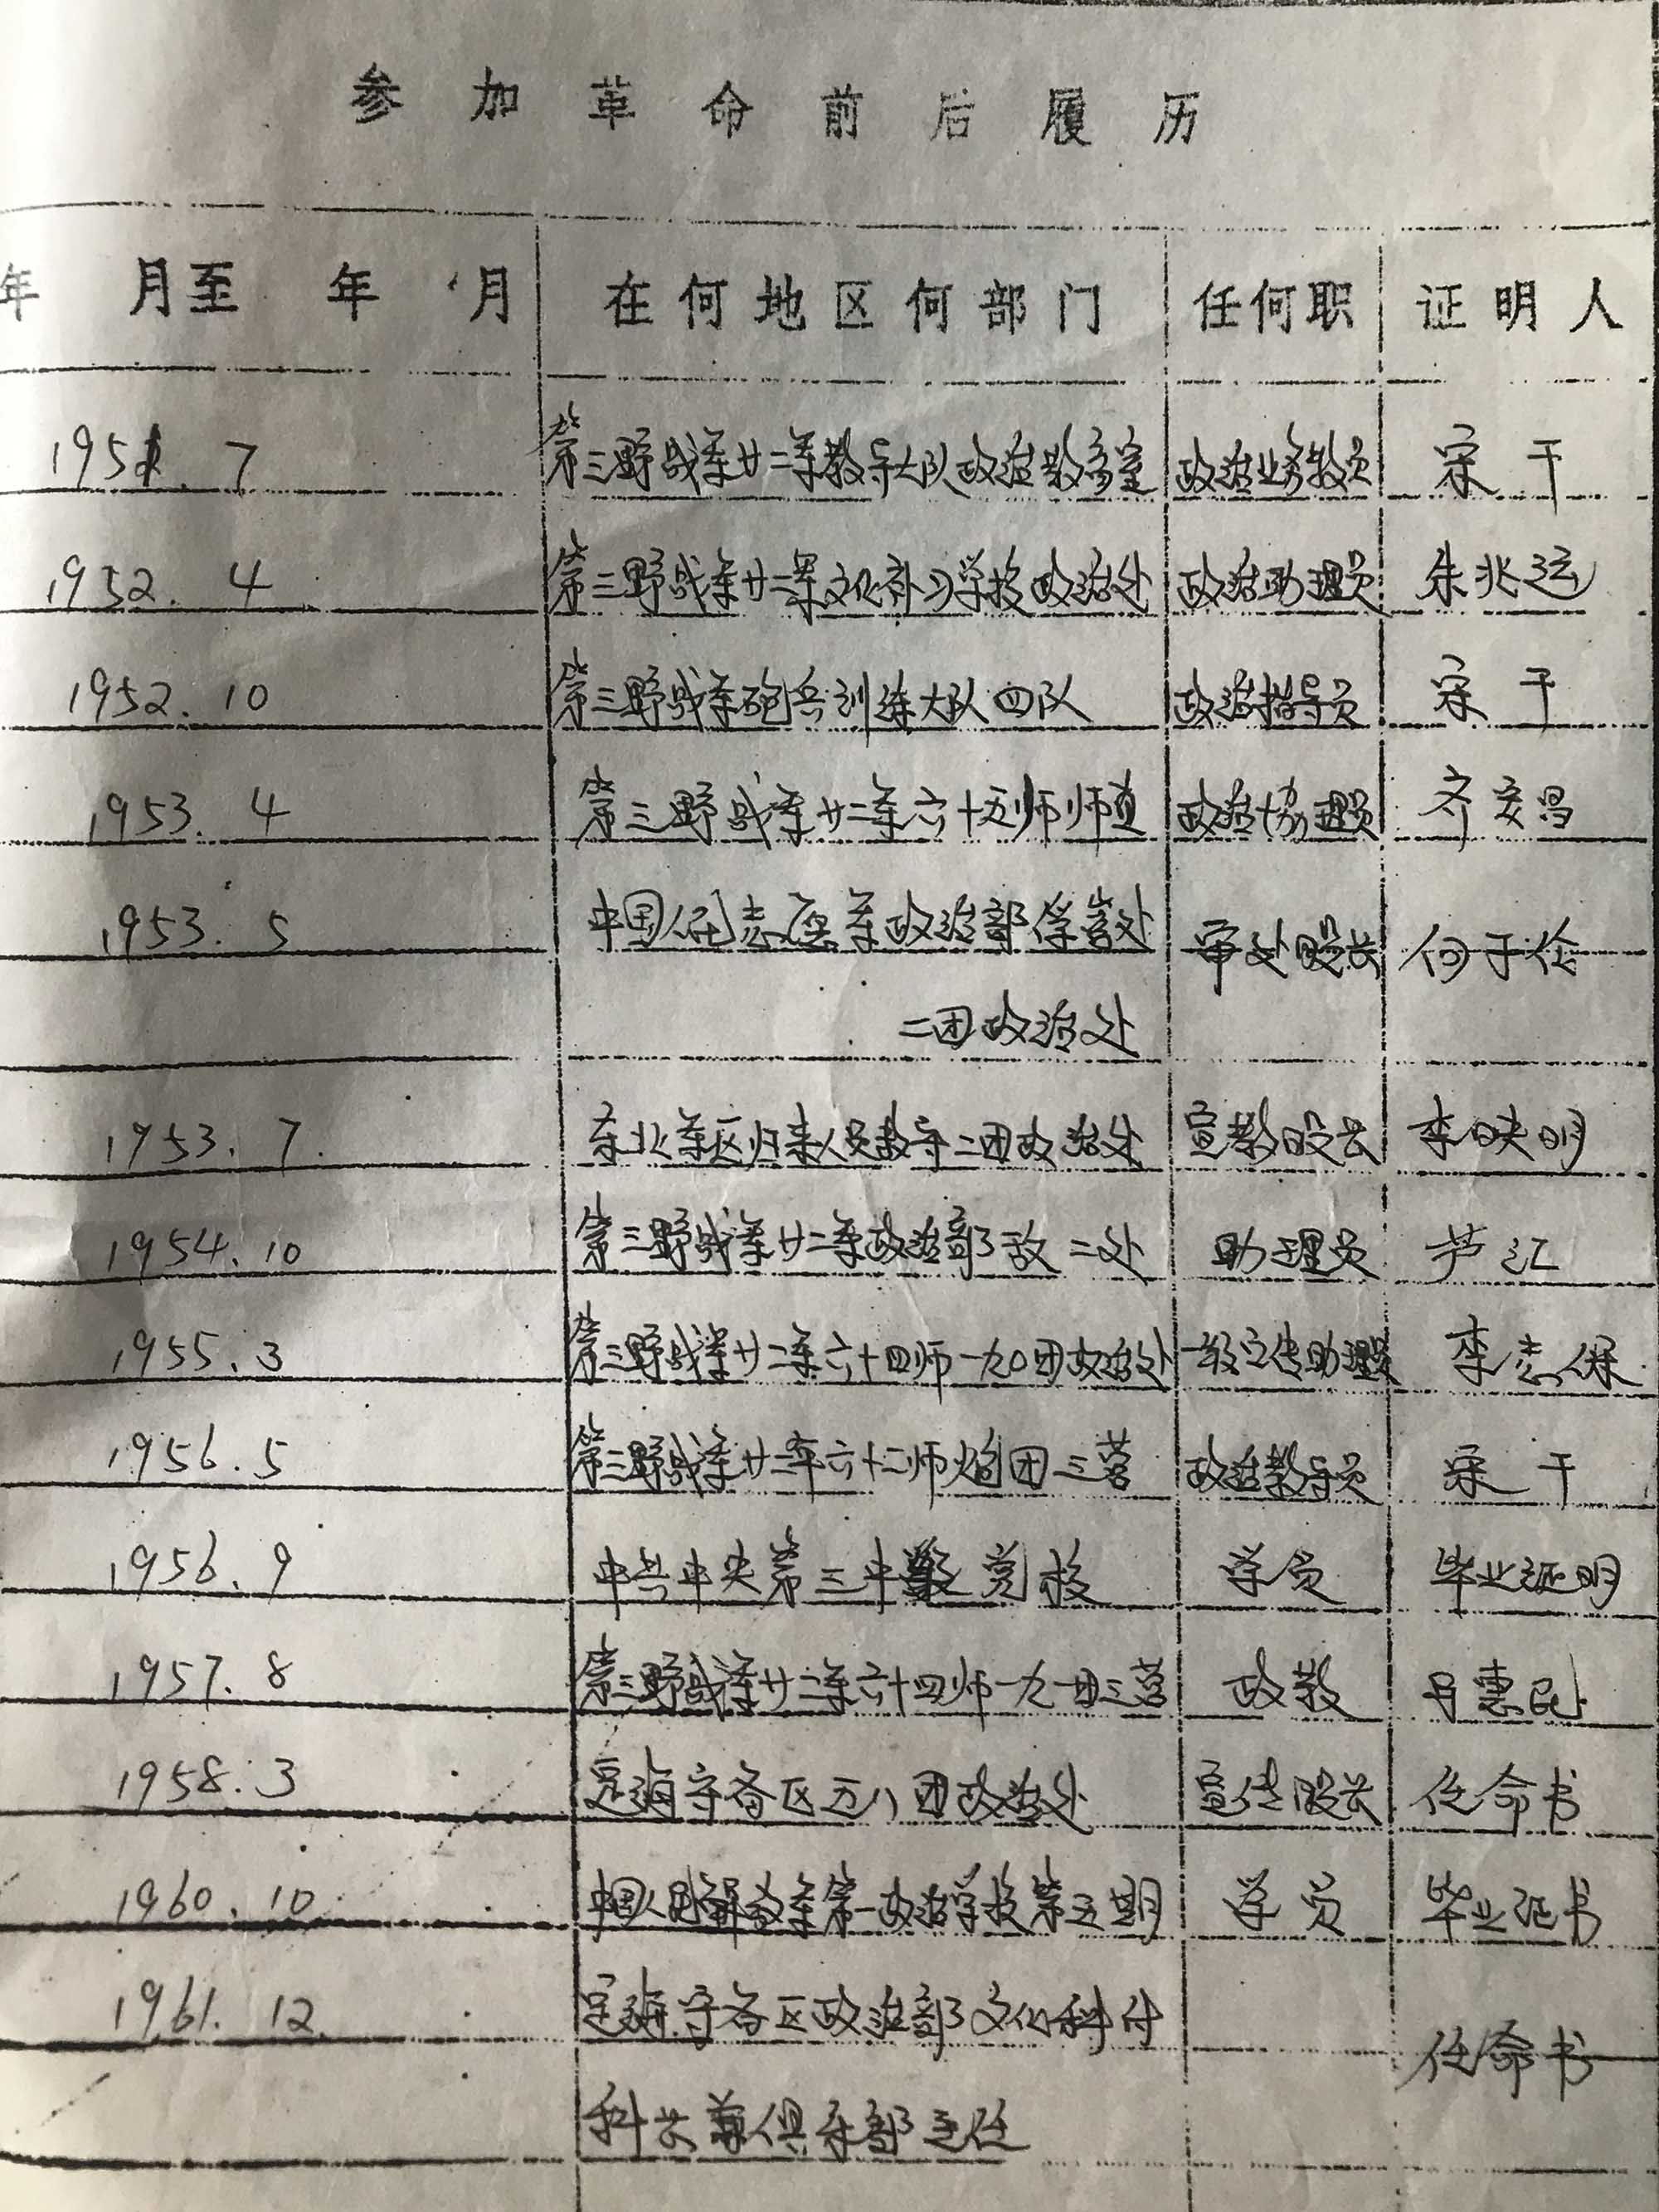 参加革命前后履历
年 月至 年 月 在何地区何部门 任何职 证明人
1951. 7 第三野战军廿二军教导大队政治教育室 政治业务教员 宋干
1952. 4 第三野战军廿二军文化补习学校政治处 政治助理员 朱兆运
1952. 10 第三野战军砲兵训练大队四队 政治指导员 宋干
1953. 4 第三野战军廿二军六十五师师直 政治协理员 齐安昌
1953. 5 中国人民志愿军政治部俘管处 审处股长 何于伦
二团政治处
1953. 7. 东北军区归来人员教导二团政治处 宣教股长 李映明
1954. 10 第三野战军廿二军政治部敌工处 助理员 芦江
1955. 3 第三野战军廿二军六十四师一九〇团政治处 一级宣传助理员 李志保
1956. 5 第三野战军廿二军六十二师炮团三营 政治教导员 宋干
1956. 9 中共中央第三中级党校 学员 毕业证明
1957. 8 第三野战军廿二军六十四师一九一团三营 政教 惠民
1958. 3 定海守备区五八团政治处 宣传股长 任命书
1960. 10 中国人民解放军第一政治学校第五期 学员 毕业证书
1961. 12 定海守备区政治部文化科付 任命书
科长兼俱乐部主任